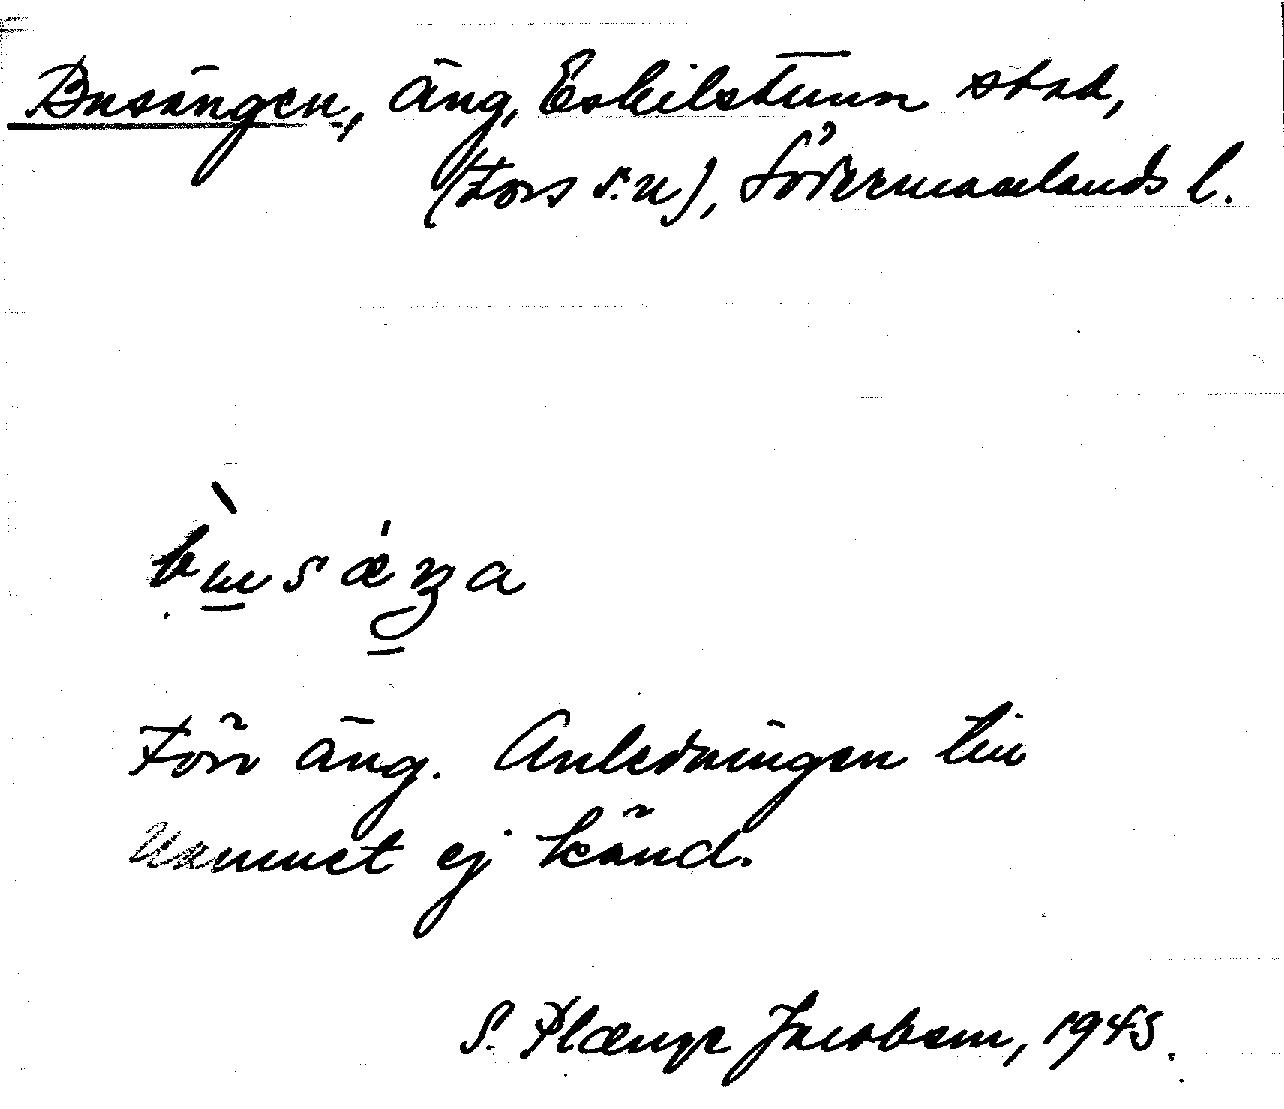 Busängen, äng, Eskilstuna stad,
(Fors s:n), Södermanlands l.
Förr äng. Anledningen till
namnet ej känd.
S. Plænge Jacobson, 1945.